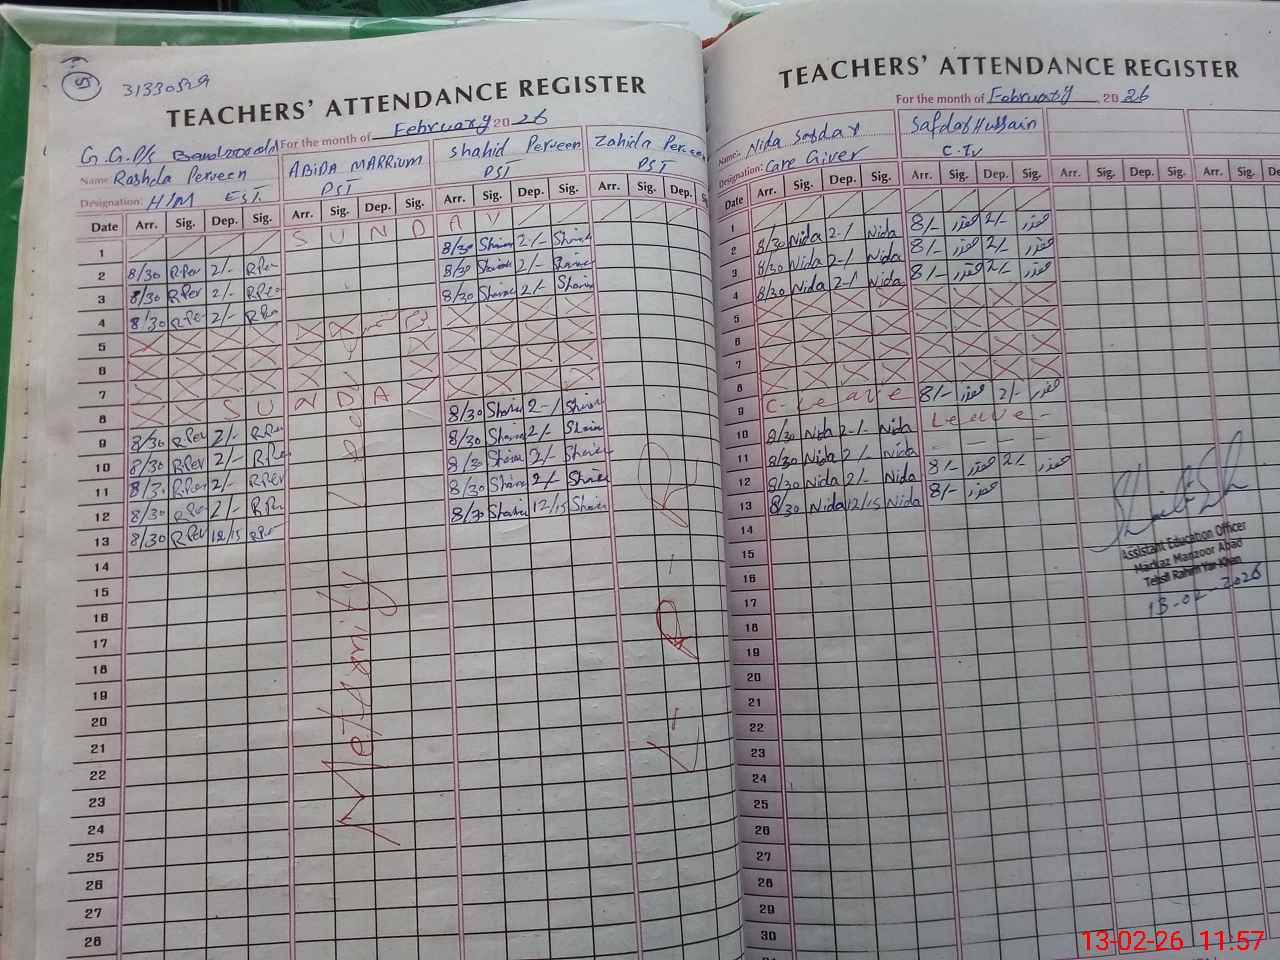 31330529
TEACHERS' ATTENDANCE REGISTER
For the month of February 2026
G.G.P/S
Name: Rashda Perveen
Designation: H/M EST.
ABIDA MARRIUM
PST
Shahid Perveen
PST
Zahida Perveen
PST
Date Arr. Sig. Dep. Sig. Arr. Sig. Dep. Sig. Arr. Sig. Dep. Sig. Arr. Sig. Dep.
1 S U N D A Y
2 8/30 R.Per 2/- R.Per 8/30 2/-
3 8/30 R.Per 2/- R.Per 8/30 2/-
4 8/30 R.Per 2/- R.Per 8/30 2/-
5
6
7
8 S U N D A Y
9 8/30 R.Per 2/- R.Per 8/30 2-/
10 8/30 R.Per 2/- R.Per 8/30 2/-
11 8/30 R.Per 2/- R.Per 8/30 2/-
12 8/30 R.Per 2/- R.Per 8/30 2/-
13 8/30 R.Per 12/15 R.Per 8/30 12/15
14
15
16
17
18
19
20
21
22
23
24
25
26
27
28
Metisnity Leave
TEACHERS' ATTENDANCE REGISTER
For the month of February 2026
Name: Nida Sardar
Designation: Care Giver
Safdar Hussain
C.IV
Date Arr. Sig. Dep. Sig. Arr. Sig. Dep. Sig. Arr. Sig. Dep. Sig. Arr. Sig.
1
2 8/30 Nida 2-/ Nida 8/- صفدر 2/- صفدر
3 8/30 Nida 2-/ Nida 8/- صفدر 2/- صفدر
4 8/30 Nida 2-/ Nida 8/- صفدر 2/- صفدر
5
6
7
8
9 C-Leave 8/- صفدر 2/- صفدر
10 8/30 Nida 2-/ Nida Leave-
11 8/30 Nida 2/- Nida
12 8/30 Nida 2/- Nida 8/- صفدر 2/- صفدر
13 8/30 Nida 12/15 Nida 8/- صفدر
14
15
16
17
18
19
20
21
22
23
24
25
26
27
28
29
30
Assistant Education Officer
Markaz Manzoor Abad
Tehsil Rahim Yar Khan
13-02-2026
13-02-26 11:57